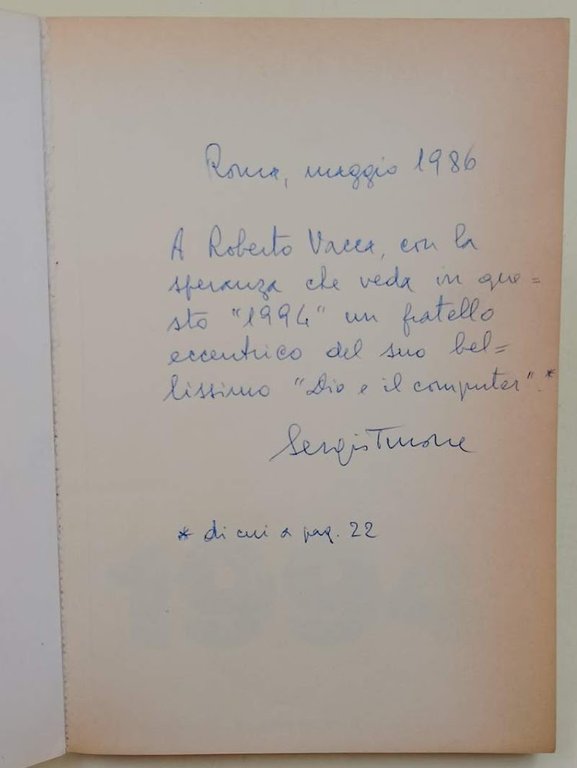 Roma, maggio 1986
A Roberto Vacca, con la
speranza che veda in que=
sto "1994" un fratello
eccentrico del suo bel=
lissimo "Dio e il computer".*
Sergio Turone
* di cui a pag. 22